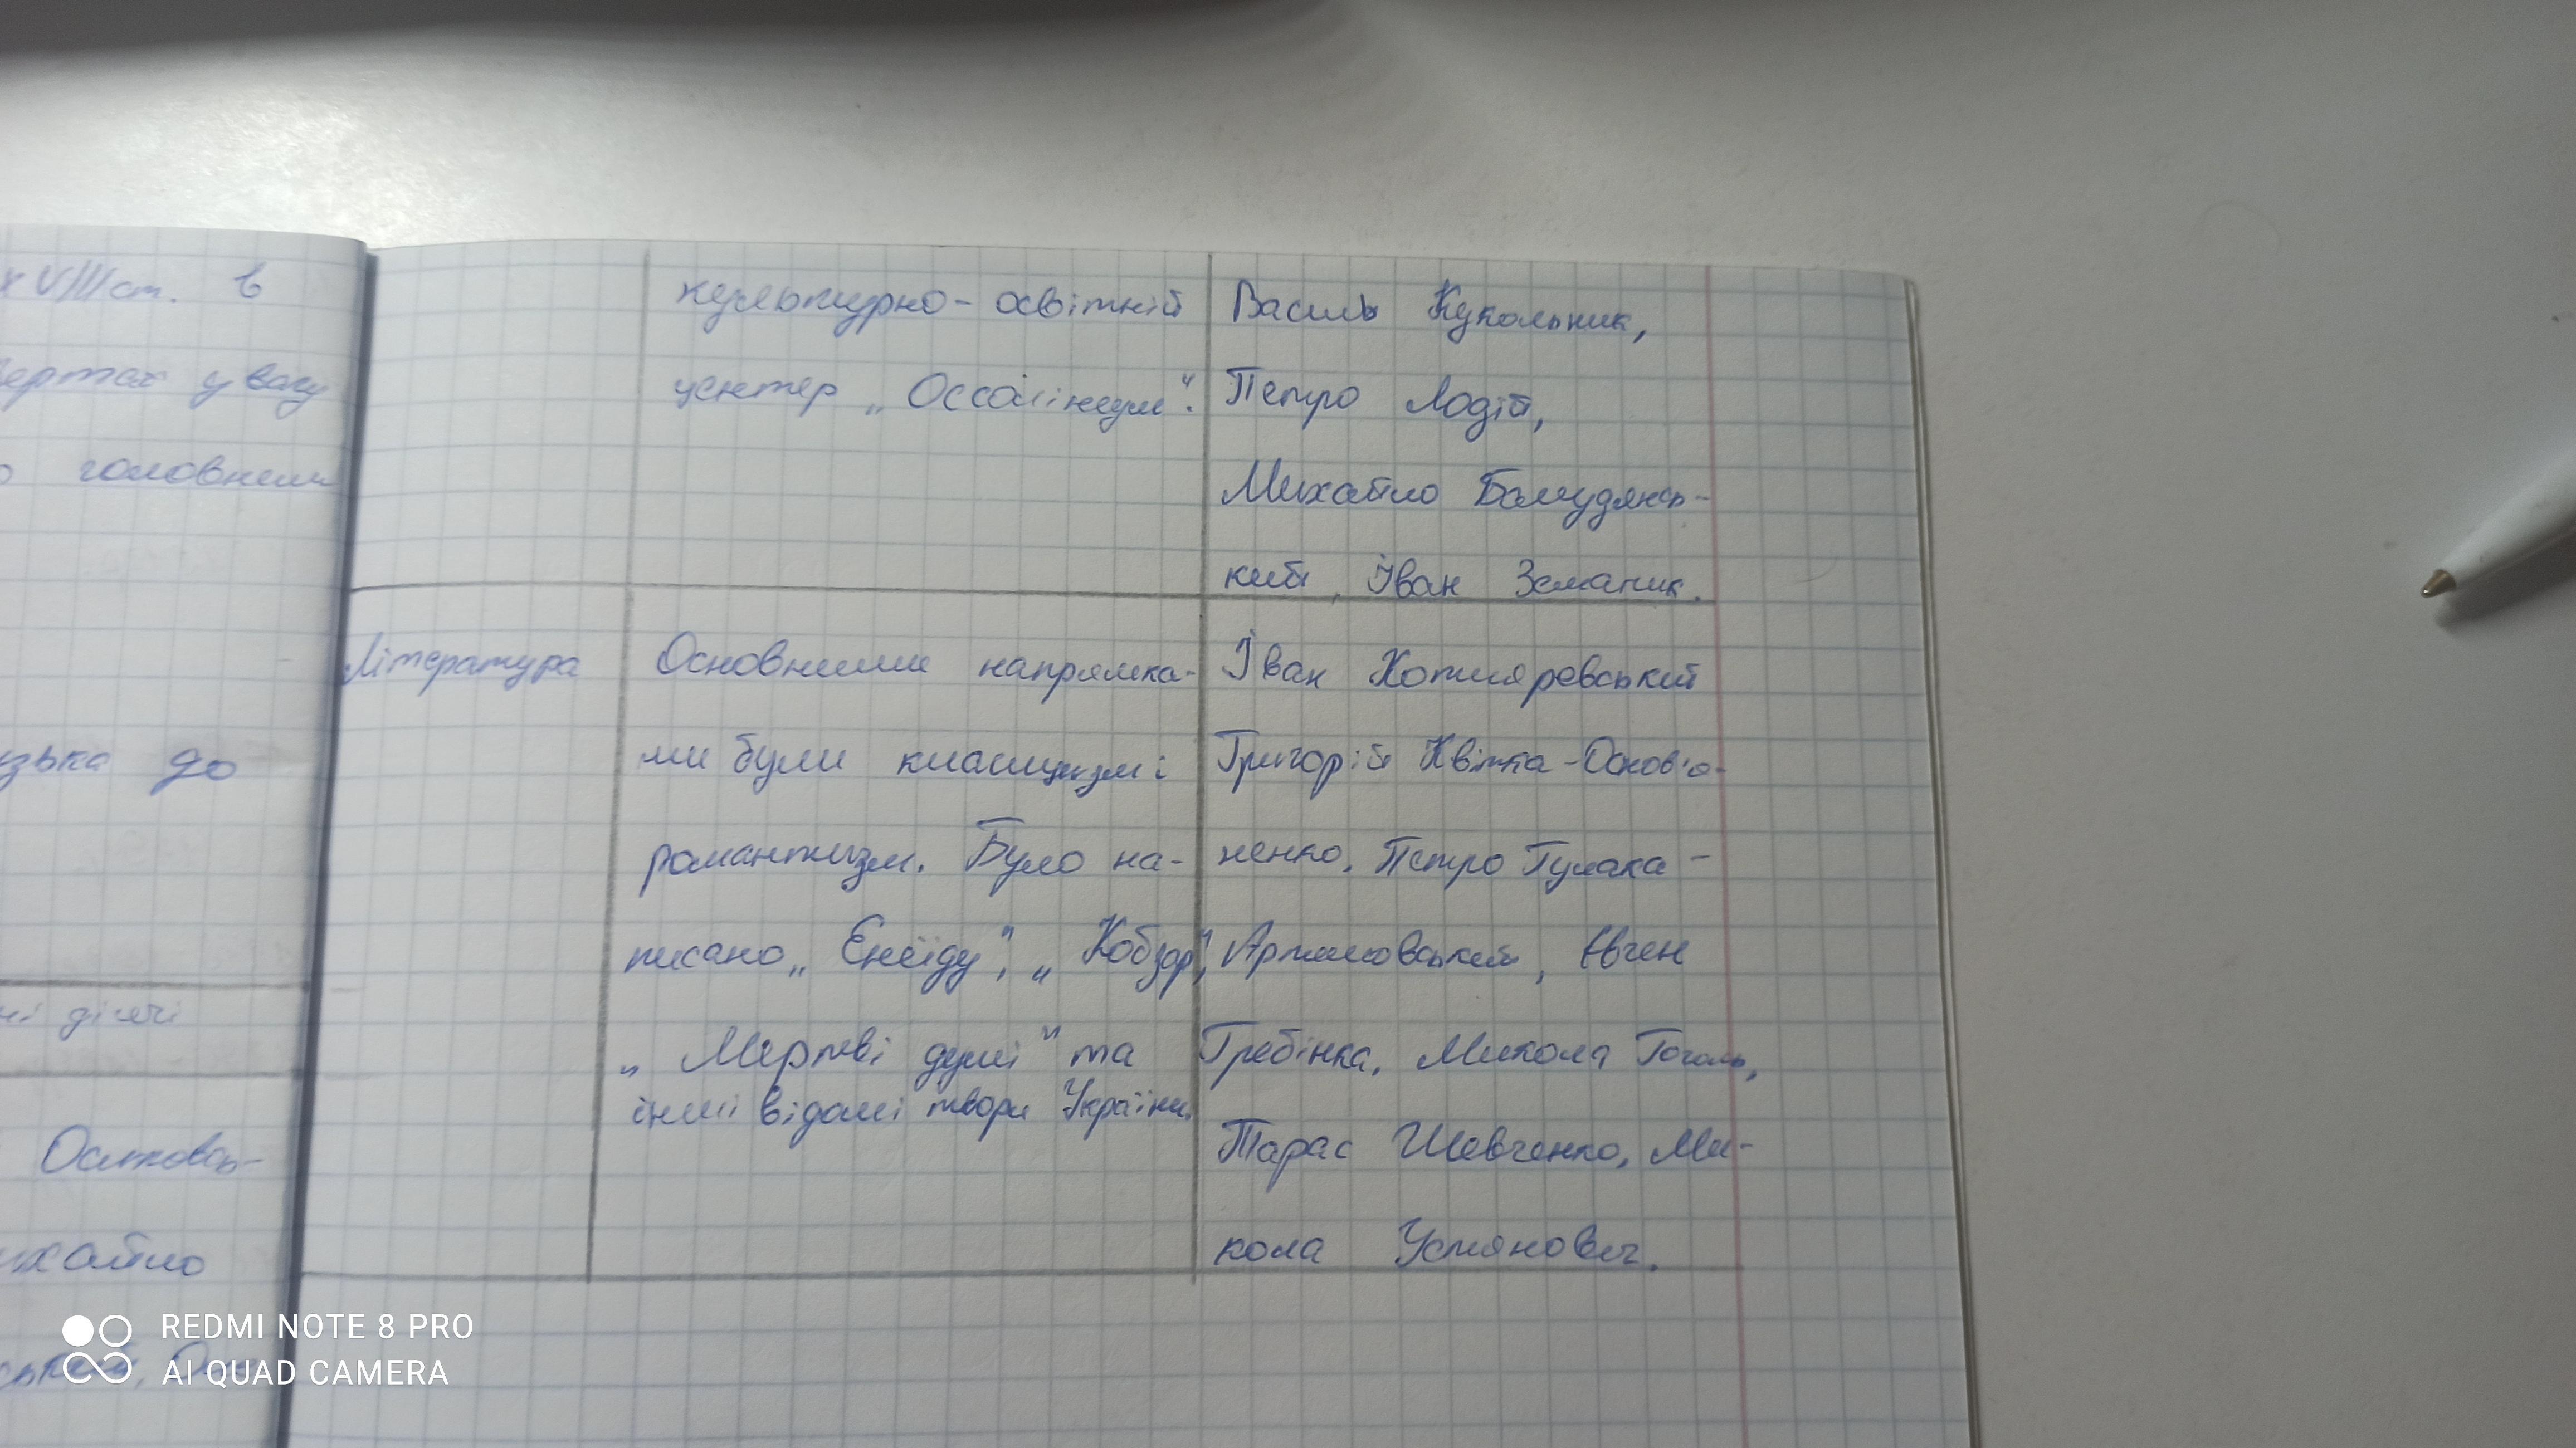 XVIII ст. в
увагу
головним
до
дiячi
культурно-освітній
центр „Оссолінеум".
Василь Кукольник,
Петро Лодій,
Михайло Балудянсь-
кий, Іван Земанчик.
Література
Основними напрямка-
ми були класицизм і
романтизм. Було на-
писано „Енеїду", „Кобзар",
„Мертві душі" та
інші відомі твори України.
Іван Котляревський
Григорій Квітка-Основ'я-
ненко, Петро Гулака-
Артемовський, Євген
Гребінка, Микола Гоголь,
Тарас Шевченко, Ми-
кола Устянович.
REDMI NOTE 8 PRO
AI QUAD CAMERA